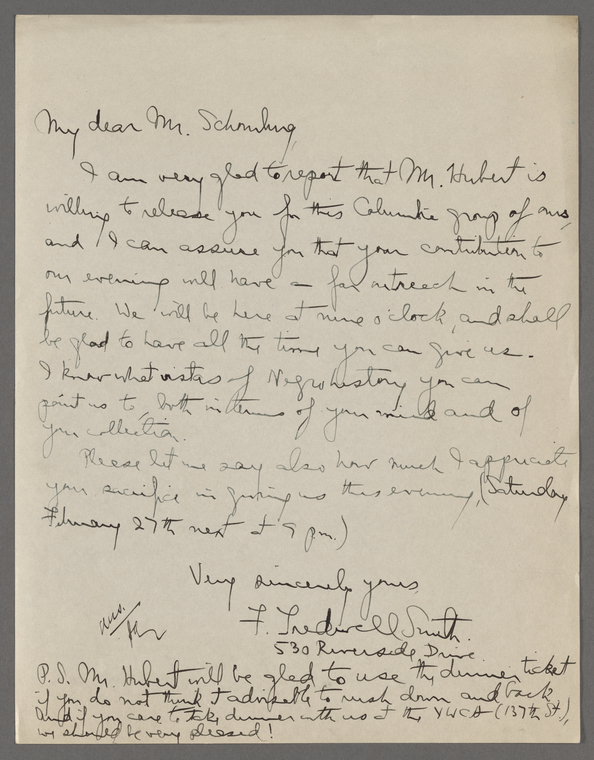 My dear Mr. Schomburg,
I am very glad to report that Mr. Hubert is
willing to release you for this Columbia group of ours,
and I can assure you that your contribution to
our evening will have a far outreach in the
future. We will be here at nine o'clock, and shall
be glad to have all the time you can give us.
I know what vistas of Negro history you can
point us to, both in terms of your mind and of
your collection.
Please let me say also how much I appriciate
your sacrifice in giving us this evening, (Saturday
February 27th next at 9 p.m.)
Very sincerely yours,
F. Tredwell Smith.
530 Riverside Drive
ans.
P.S. Mr. Hubert will be glad to use the dinner ticket
if you do not think it advisable to rush down and back
And if you care to take dinner with us at the YWCA (137th St.),
we should be very pleased!